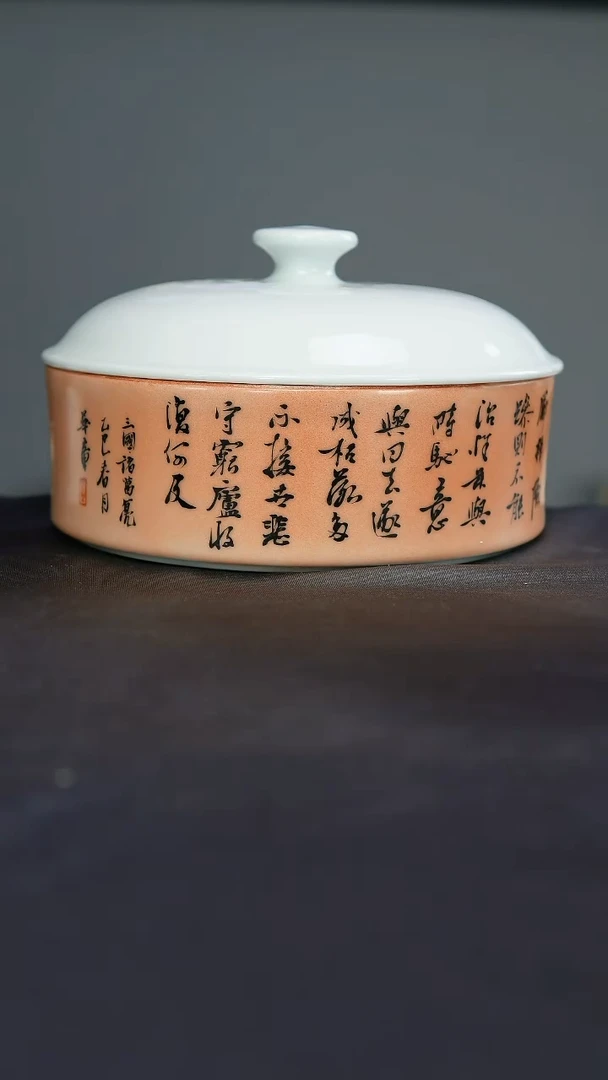 勵精險
躁則不能
治性年與
時馳意
與日去遂
成枯落多
不接世悲
守窮廬將
復何及
三國諸葛亮
乙巳春月